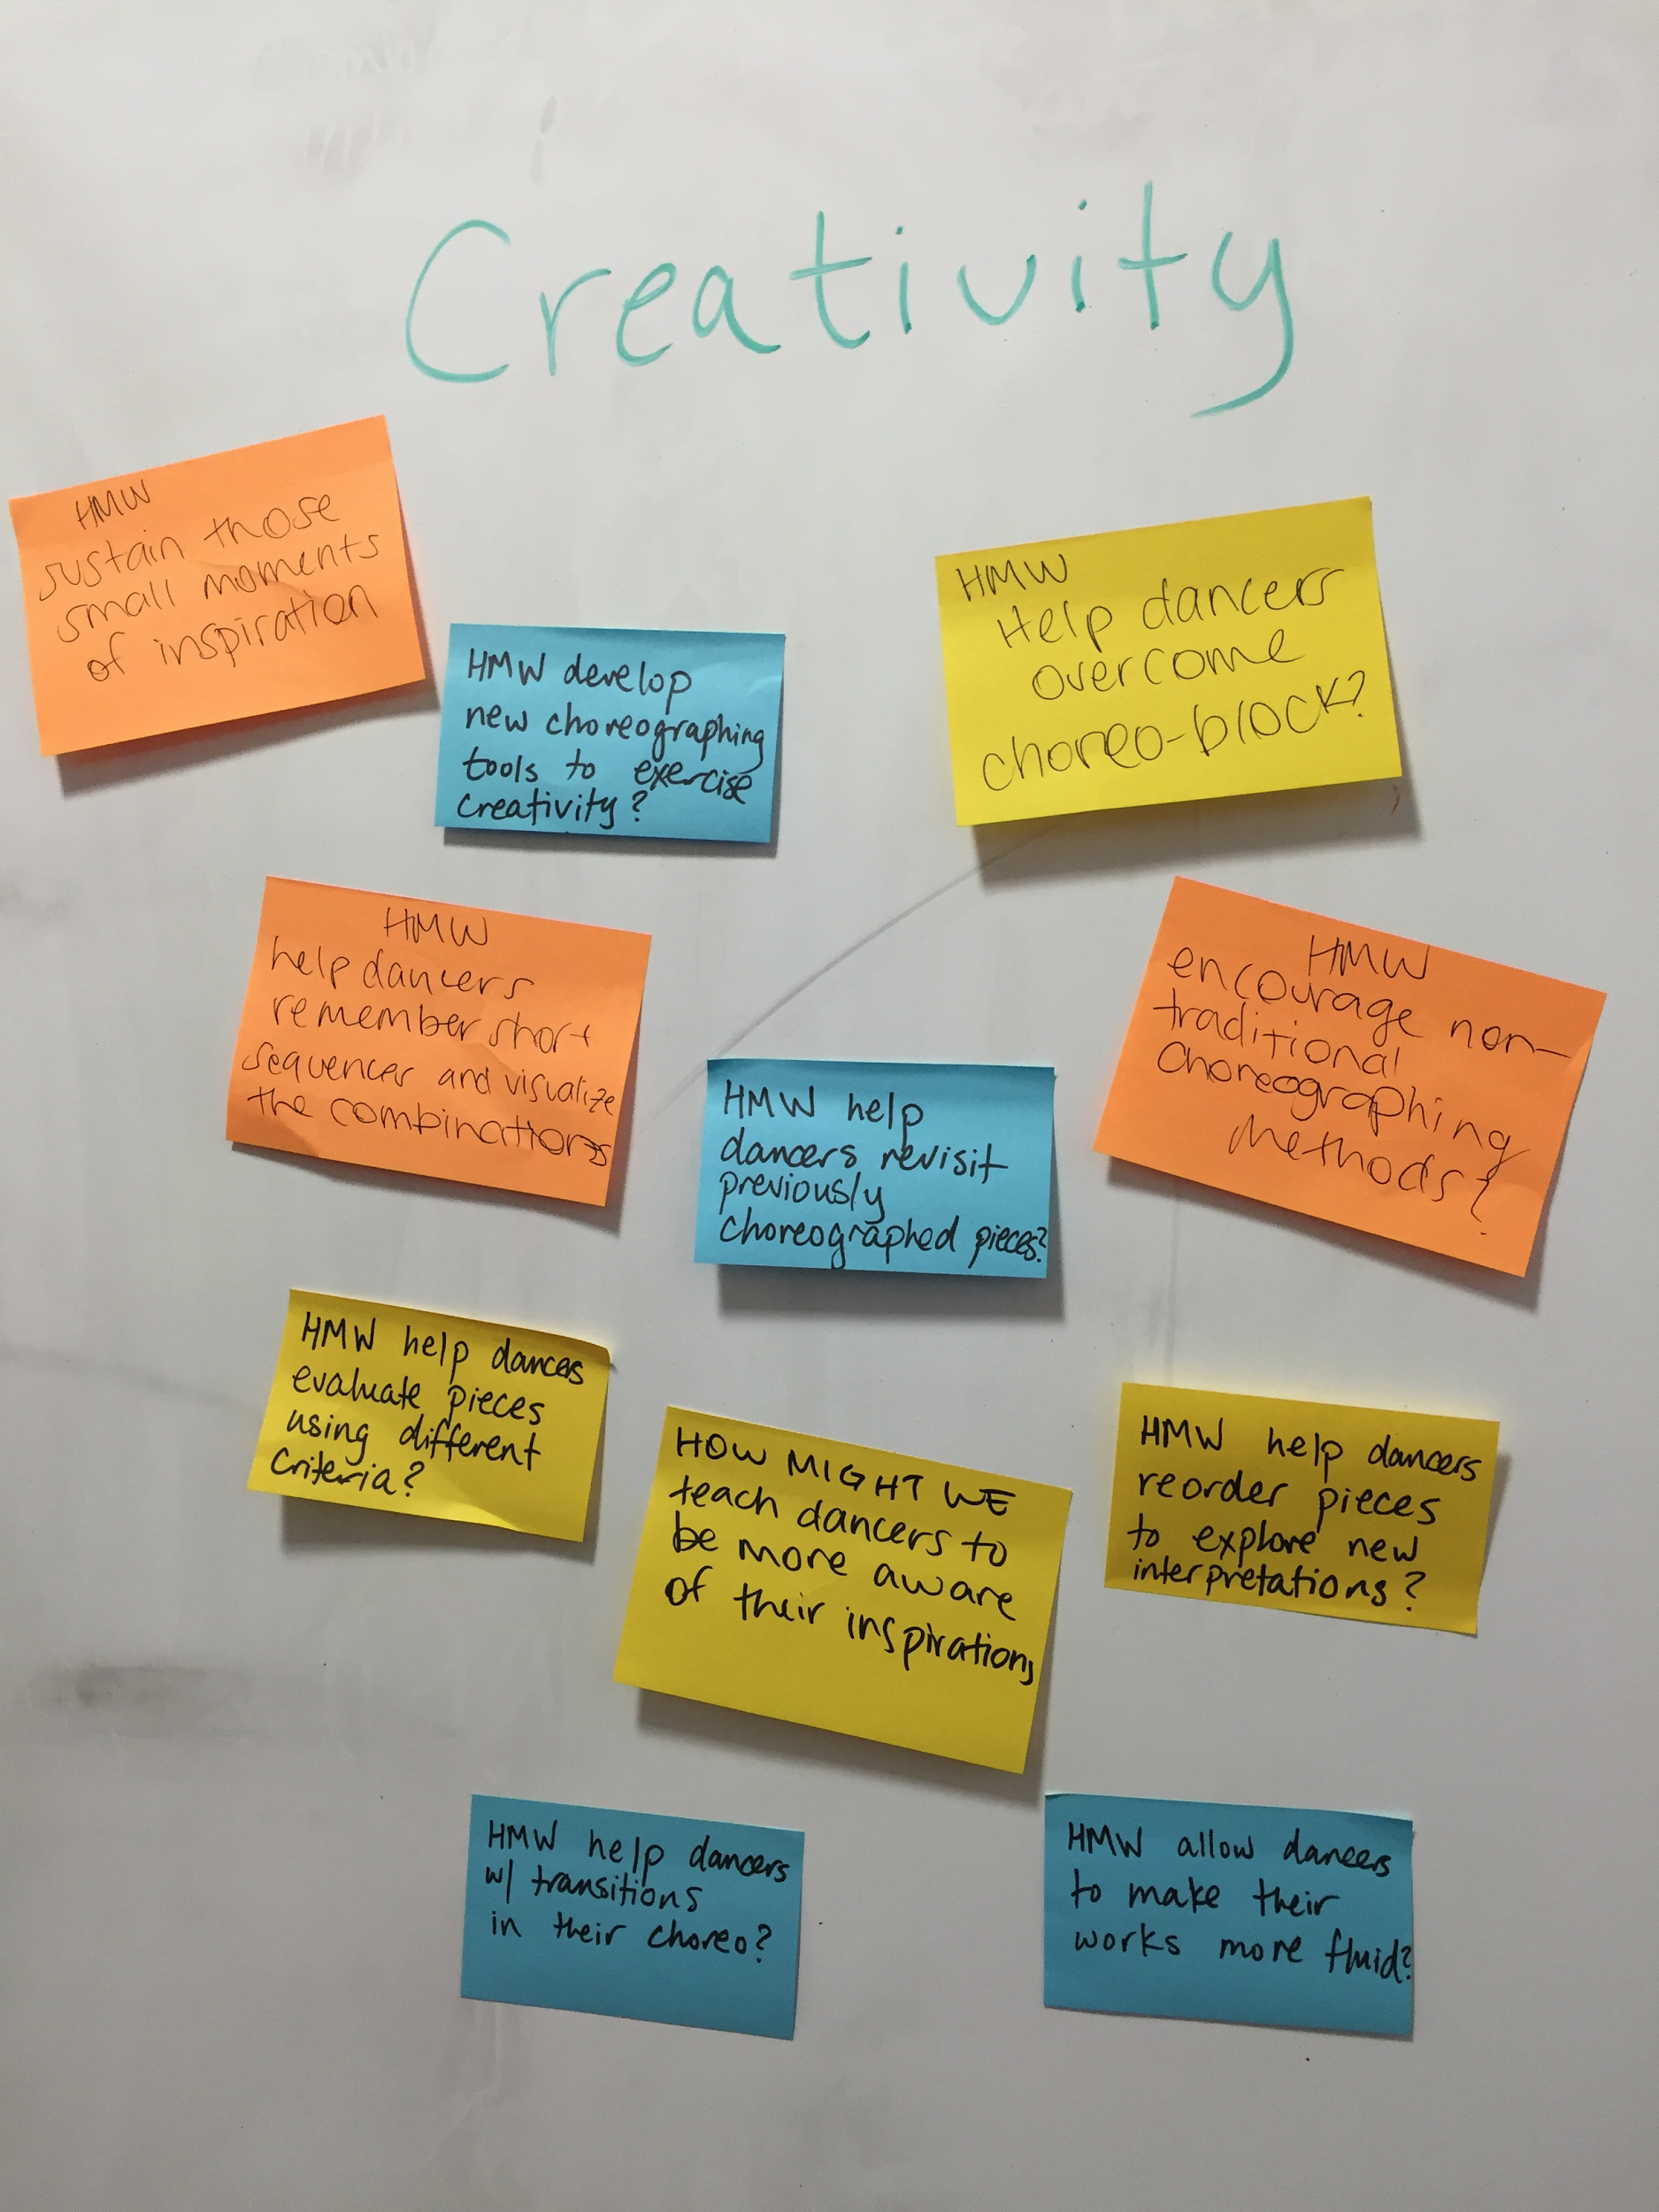 Creativity
HMW
sustain those
small moments
of inspiration
HMW develop
new choreographing
tools to exercise
creativity?
HMW
Help dancers
overcome
choreo-block?
HMW
help dancers
remember short
sequences and visualize
the combinations
HMW help
dancers revisit
previously
choreographed pieces?
HMW
encourage non-
traditional
choreographing
methods?
HMW help dancers
evaluate pieces
using different
criteria?
HOW MIGHT WE
teach dancers to
be more aware
of their inspirations
HMW help dancers
reorder pieces
to explore new
interpretations?
HMW help dancers
w/ transitions
in their choreo?
HMW allow dancers
to make their
works more fluid?